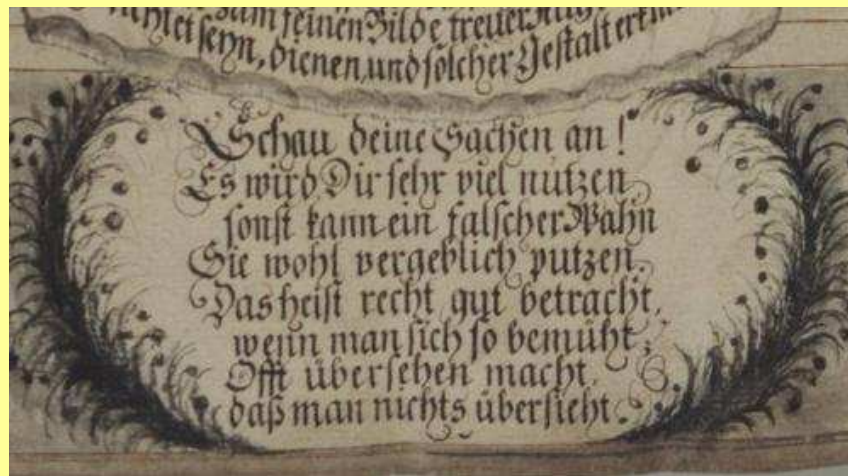 seinen Bilde treuer
seyn, dienen, und solcher Gestalt
Schau deine Sachen an!
Es wird Dir sehr viel nützen,
sonst kann ein falscher Wahn
Sie wohl vergeblich putzen.
Das heist recht gut betracht,
wenn man sich so bemüht,
Offt übersehen macht,
daß man nichts übersieht.